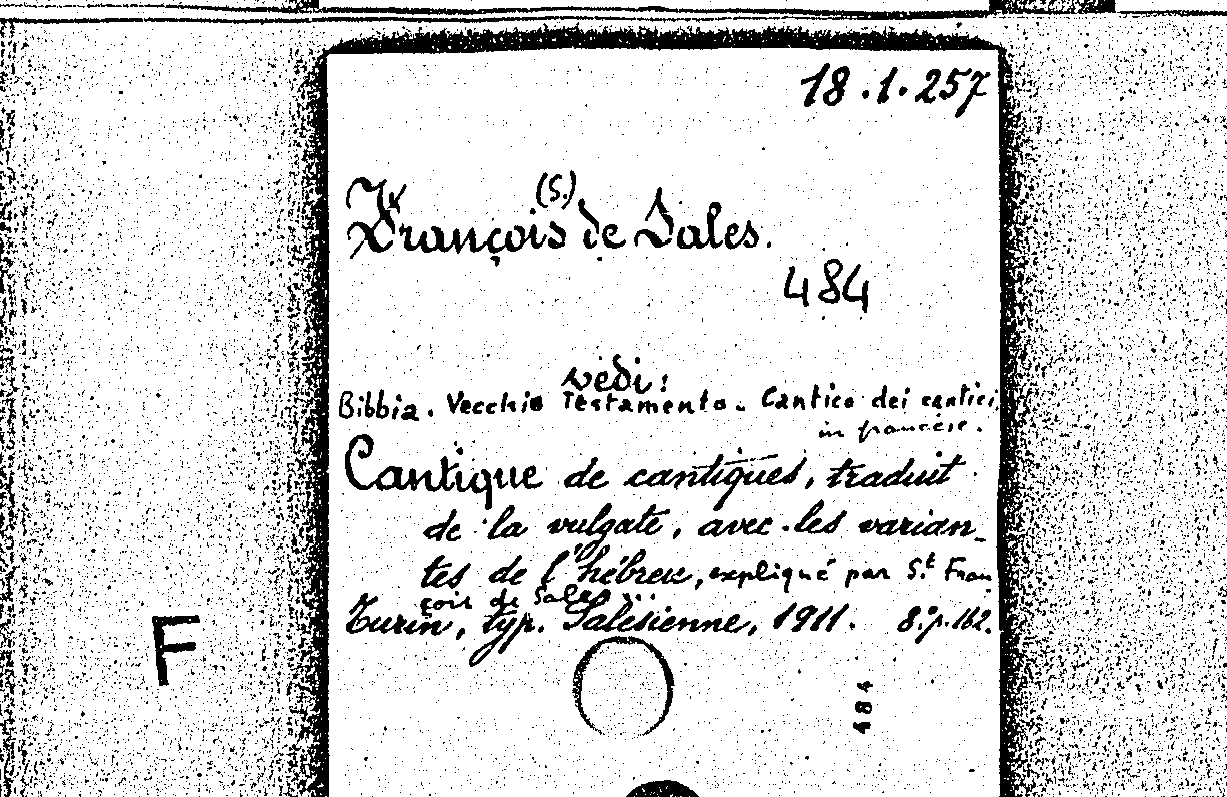 18.1.257
(S.)
François de Sales.
484
vedi:
Bibbia. Vecchio Testamento. Cantico dei cantici
in francese.
Cantique de cantiques, traduit
de la vulgate, avec les varian-
tes de l'hébreu, expliqué par S.t Fran
çois de Sales ...
Turin, typ. Salésienne, 1911. 8.° p. 162.
F
484